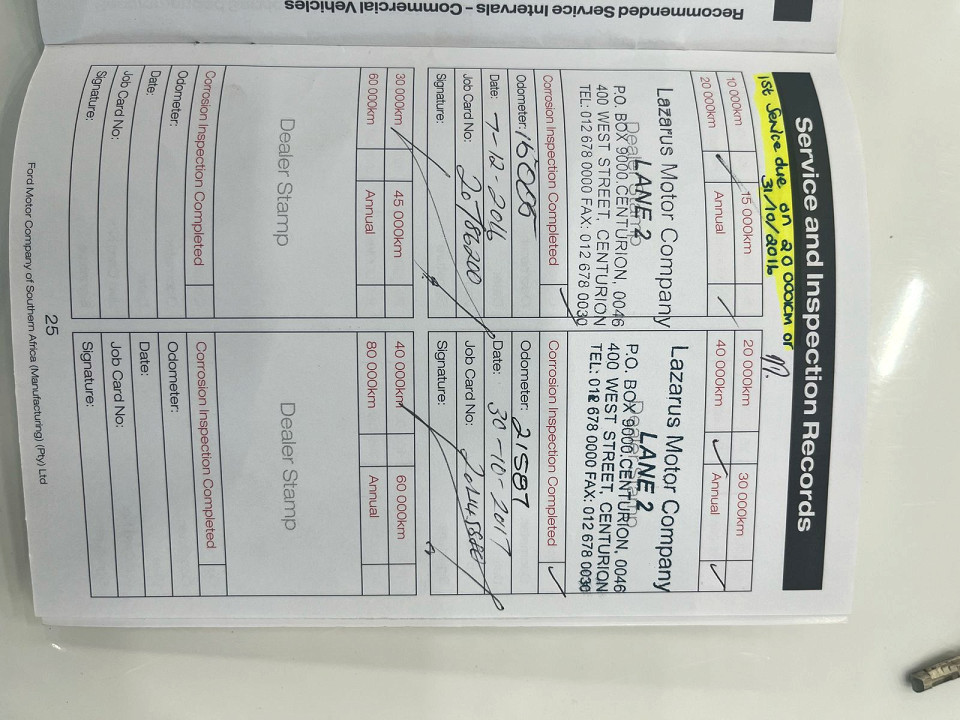 Recommended Service Intervals - Commercial Vehicles
Service and Inspection Records
1st Service due on 20 000KM or
31/10/2016
10 000km
15 000km
20 000km
Annual
Lazarus Motor Company
Dealer Stamp
LANE 2
P.O. BOX 9000 CENTURION, 0046
400 WEST STREET, CENTURION
TEL: 012 678 0000 FAX: 012 678 0030
Corrosion Inspection Completed
Odometer:
Date: 7-12-2016
Job Card No: 20786200
Signature:
20 000km
30 000km
40 000km
Annual
Lazarus Motor Company
Dealer Stamp
LANE 2
P.O. BOX 9000 CENTURION, 0046
400 WEST STREET, CENTURION
TEL: 012 678 0000 FAX: 012 678 0030
Corrosion Inspection Completed
Odometer: 21587
Date: 30-10-2017
Job Card No:
Signature:
30 000km
45 000km
60 000km
Annual
Dealer Stamp
Corrosion Inspection Completed
Odometer:
Date:
Job Card No:
Signature:
40 000km
60 000km
80 000km
Annual
Dealer Stamp
Corrosion Inspection Completed
Odometer:
Date:
Job Card No:
Signature:
25
Ford Motor Company of Southern Africa (Manufacturing) (Pty) Ltd